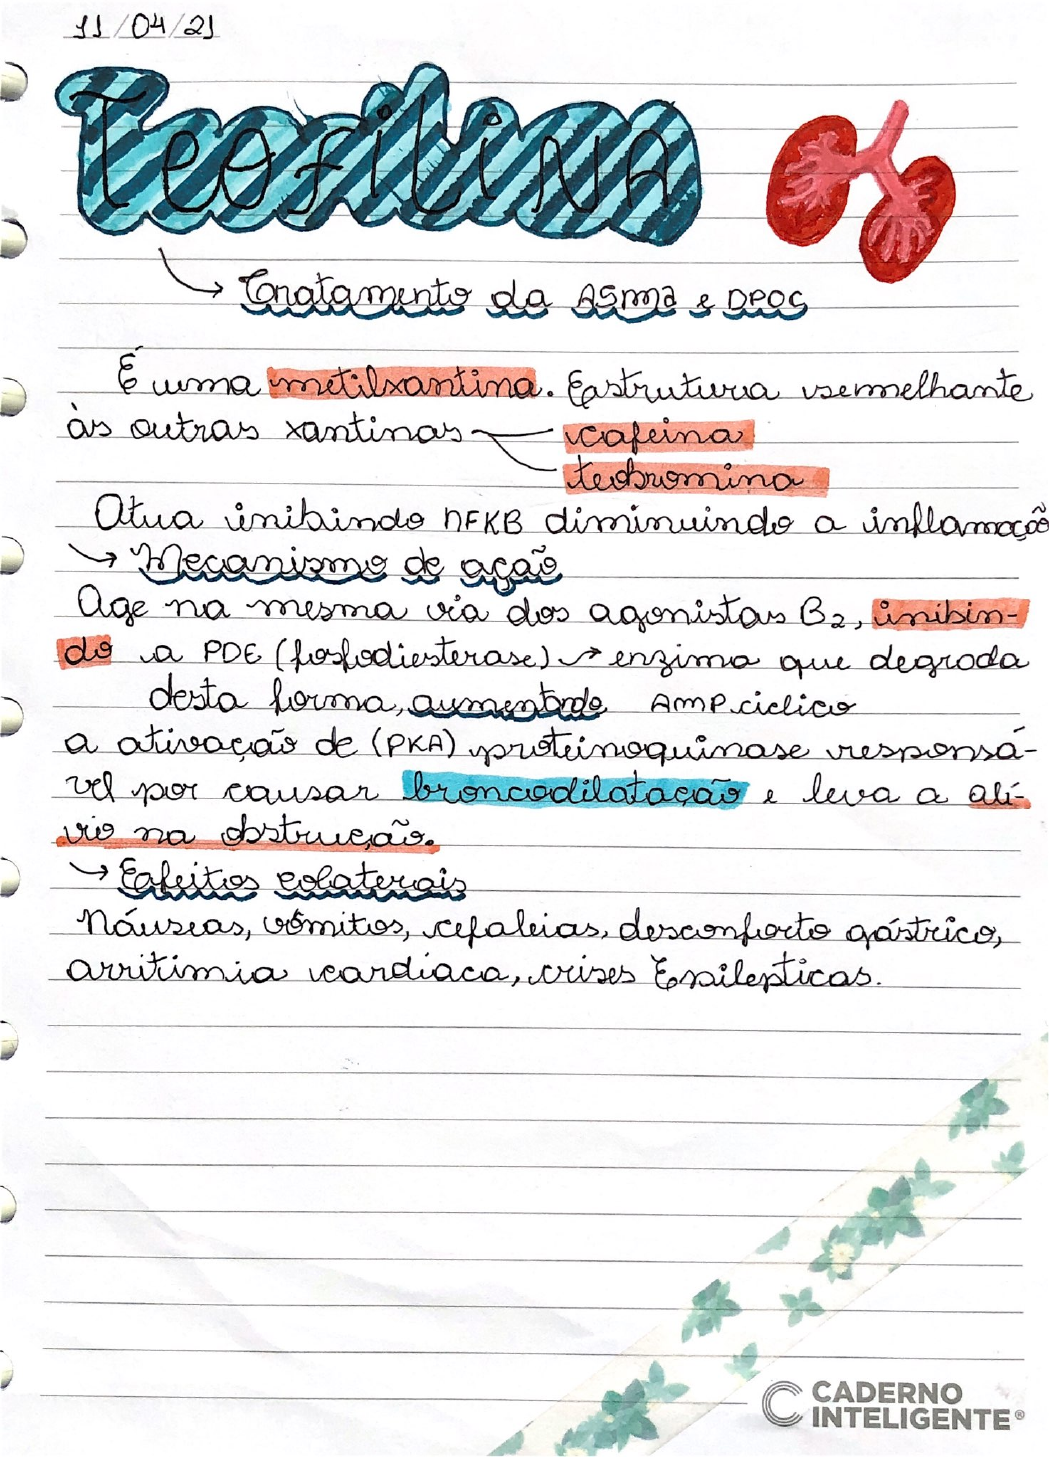 11/04/21
Teofilina
→ Tratamento da ASMA e DPOC
É uma metilxantina. Estrutura semelhante
às outras xantinas cafeina
teobromina
Atua inibindo NFKB diminuindo a inflamação
→ Mecanismo de ação
Age na mesma via dos agonistas B2, inibin-
do a PDE (fosfodiesterase) → enzima que degrada
desta forma, aumentando AMP ciclico
a ativação de (PKA) proteinoquinase responsá-
vel por causar broncodilatação e leva a alí-
vio na obstrução.
→ Efeitos colaterais
Náuseas, vômitos, cefaleias, desconforto gástrico,
arritimia cardíaca, crises Epilepticas.
CADERNO
INTELIGENTE®